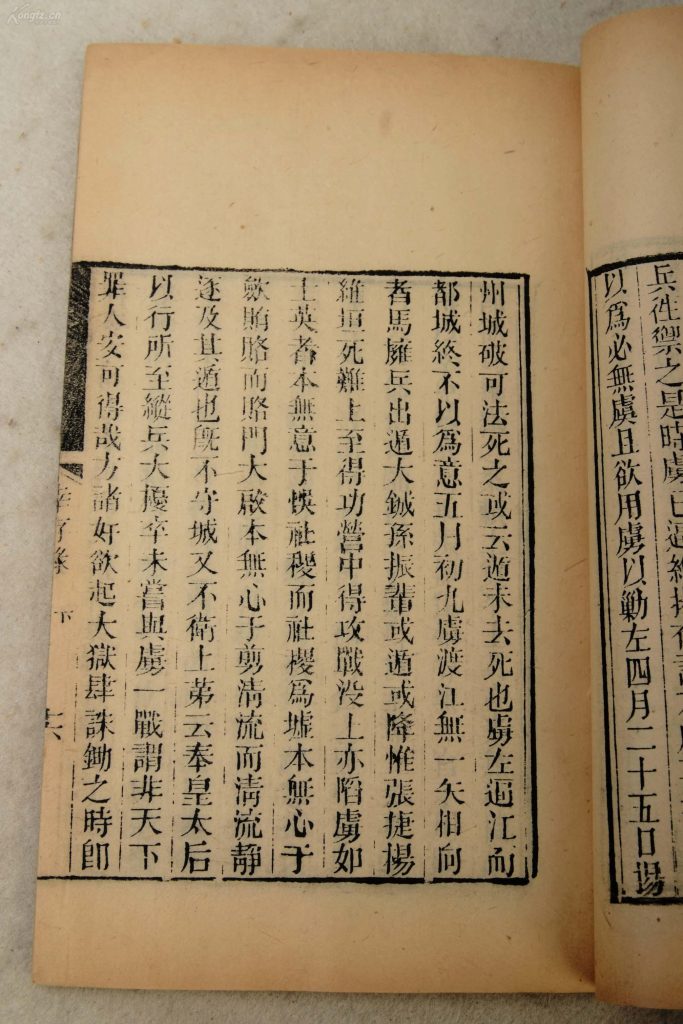 兵往禦之是時虜已逼維揚有
以爲必無虞且欲用虜以勦左四月二十五日揚
州城破可法死之或云遁未去死也虜左逼江而
都城終不以爲意五月初九虜渡江無一矢相向
者馬擁兵出遁大鋮孫振輩或遁或降惟張捷楊
維垣死難上至得功營中得攻戰没上亦陷虜如
士英者本無意于悞社稷而社稷爲墟本無心于
歛賄賂而賂門大啟本無心于剪清流而清流靜
逐及其遁也旣不守城又不衛上第云奉皇太后
以行所至縱兵大擾卒未嘗與虜一戰謂非天下
罪人安可得哉方諸奸欲起大獄肆誅鋤之時卽
幸存錄 下
Kongfz.cn